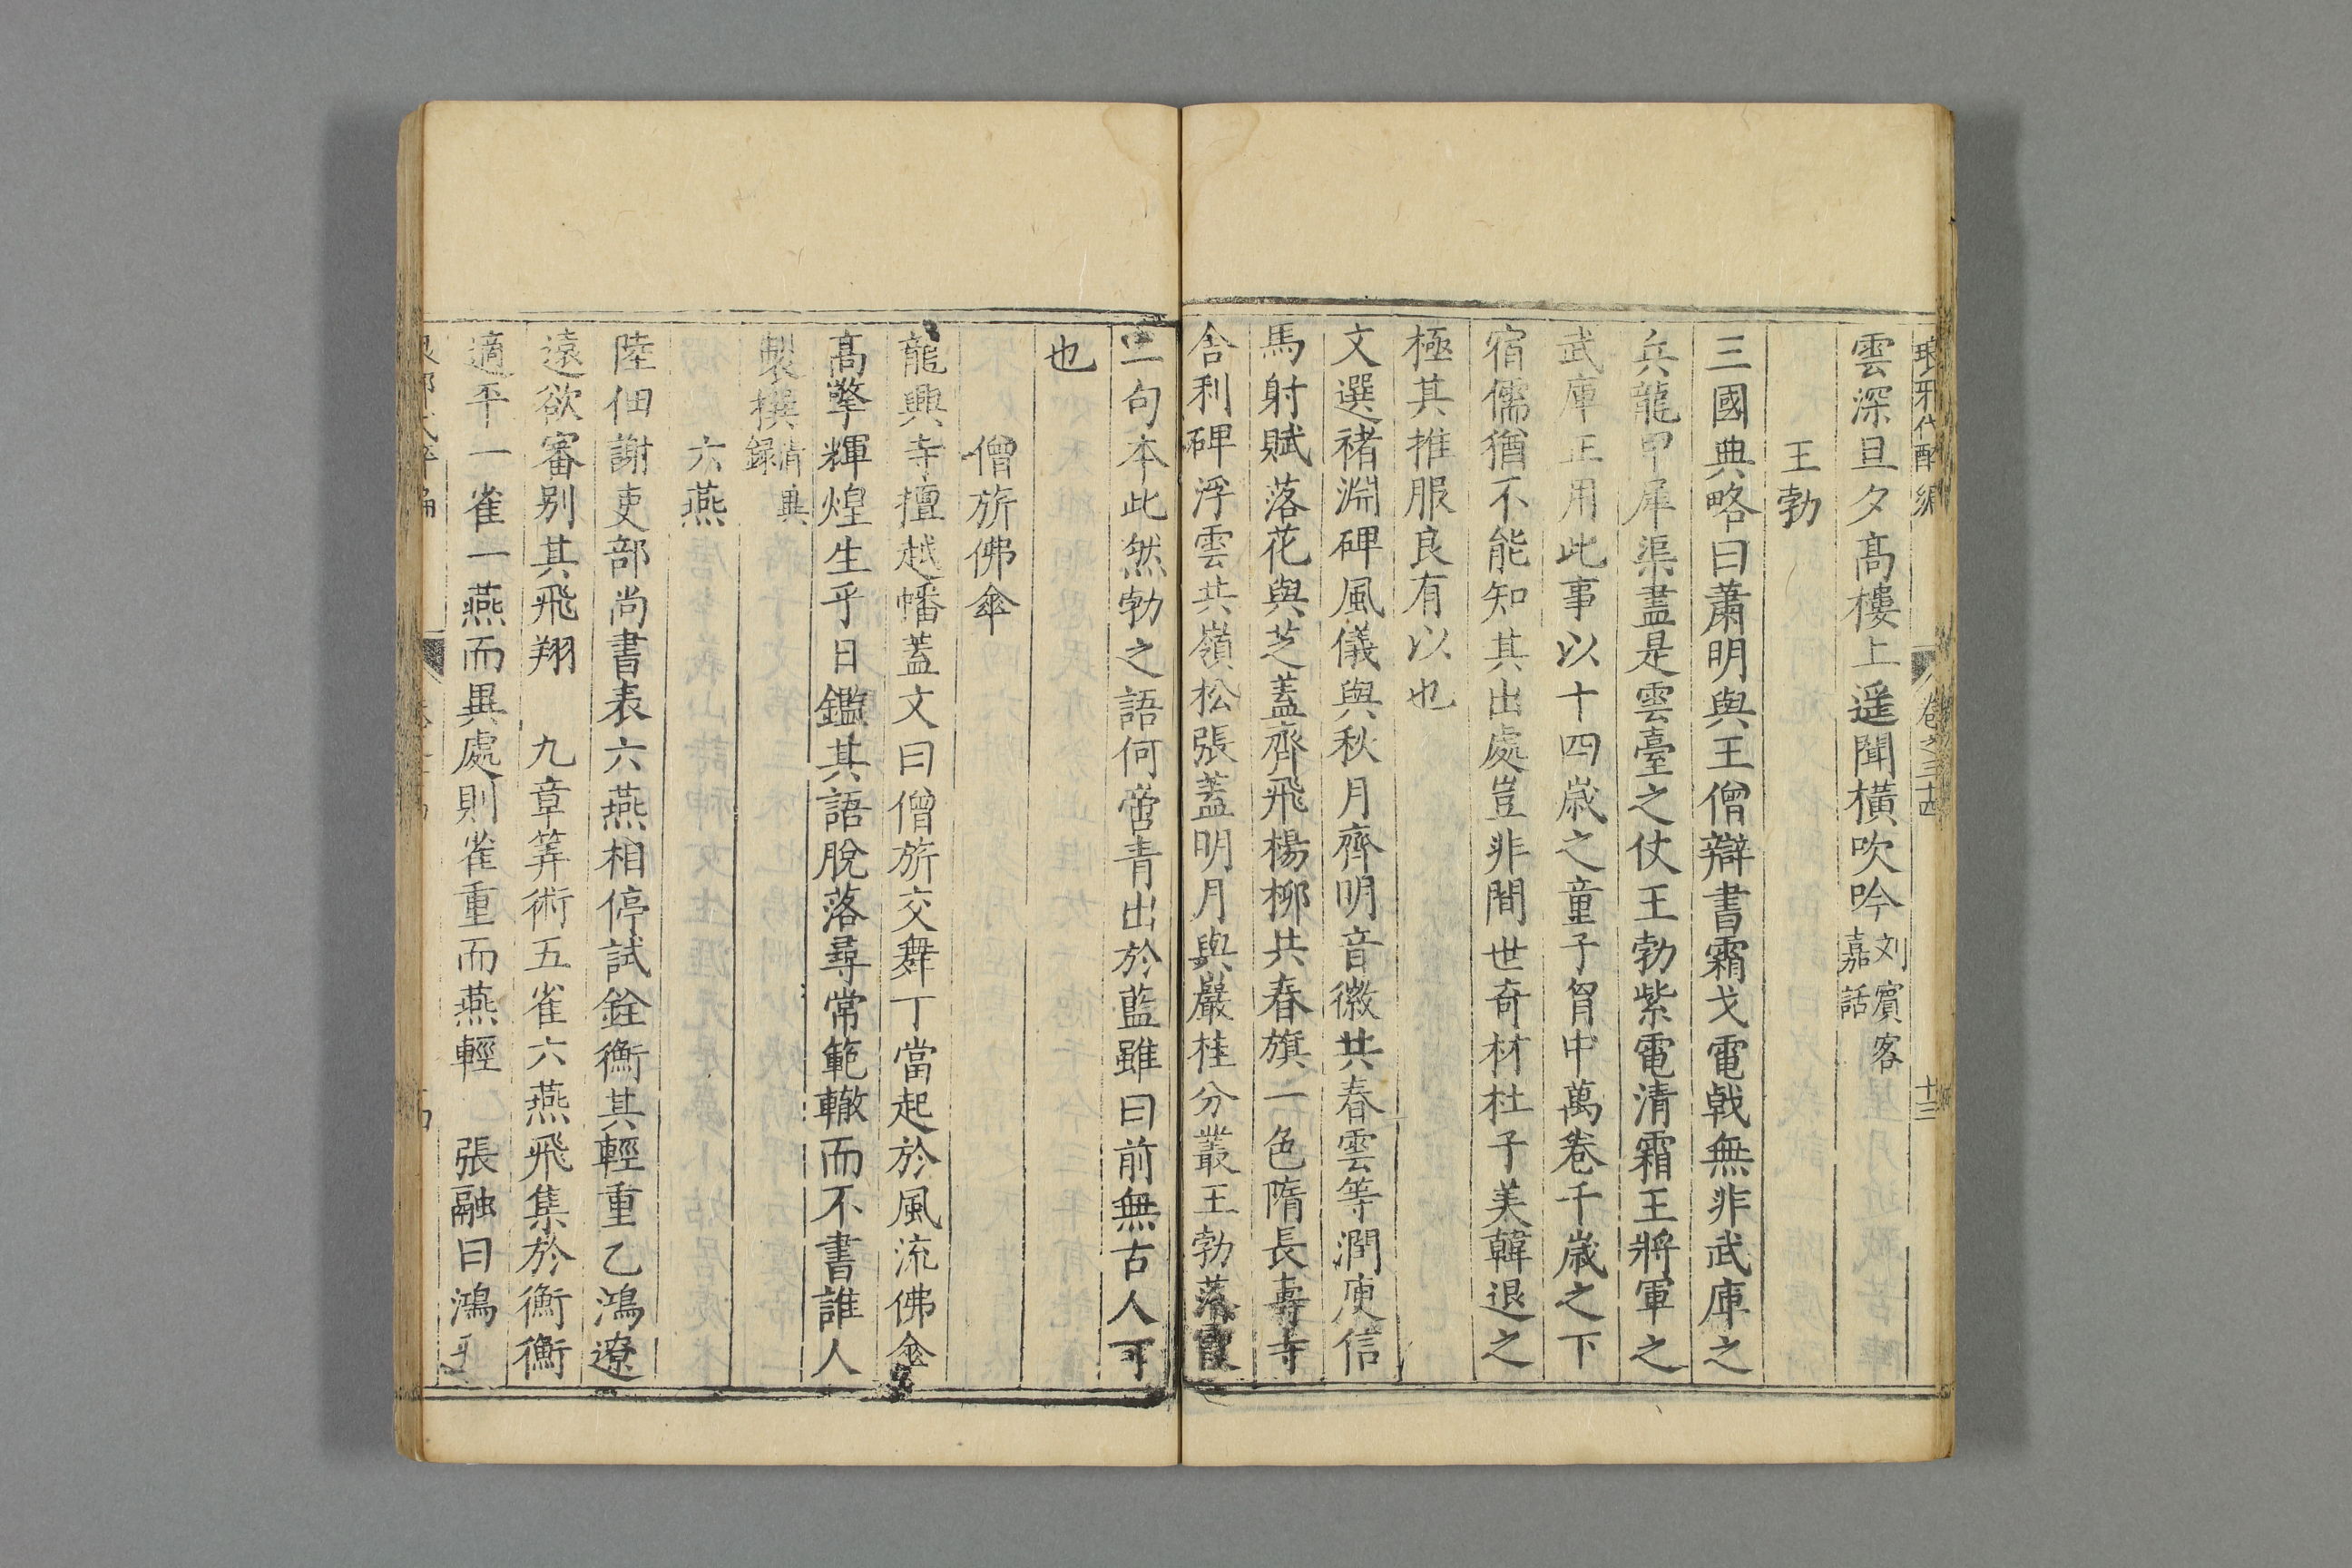 琅邪代醉編 卷之三十四 十三
雲深旦夕髙樓上遥聞橫吹吟刘賔客嘉話
王勃
三國典略曰蕭明與王僧辯書霜戈電戟無非武庫之
兵龍甲犀渠盡是雲臺之仗王勃紫電清霜王將軍之
武庫正用此事以十四歲之童子胷中萬卷千歲之下
宿儒猶不能知其出處豈非間世奇材杜子美韓退之
極其推服良有以也
文選褚淵碑風儀與秋月齊明音徽共春雲等潤庾信
馬射賦落花與芝蓋齊飛楊柳共春旗一色隋長壽寺
舎利碑浮雲共嶺松張蓋明月與巖桂分叢王勃落霞
二句本此然勃之語何啻青出於藍雖曰前無古人可
也
僧旂佛傘
龍興寺檀越幡蓋文曰僧旂交舞丁當起於風流佛傘
髙擎輝煌生乎日鑑其語脫落尋常範轍而不書誰人
製撰清異録
六燕
陸佃謝吏部尚書表六燕相停試銓衡其輕重乙鴻遼
遠欲審别其飛翔 九章筭術五雀六燕飛集於衡衡
適平一雀一燕而異處則雀重而燕輕 張融曰鴻